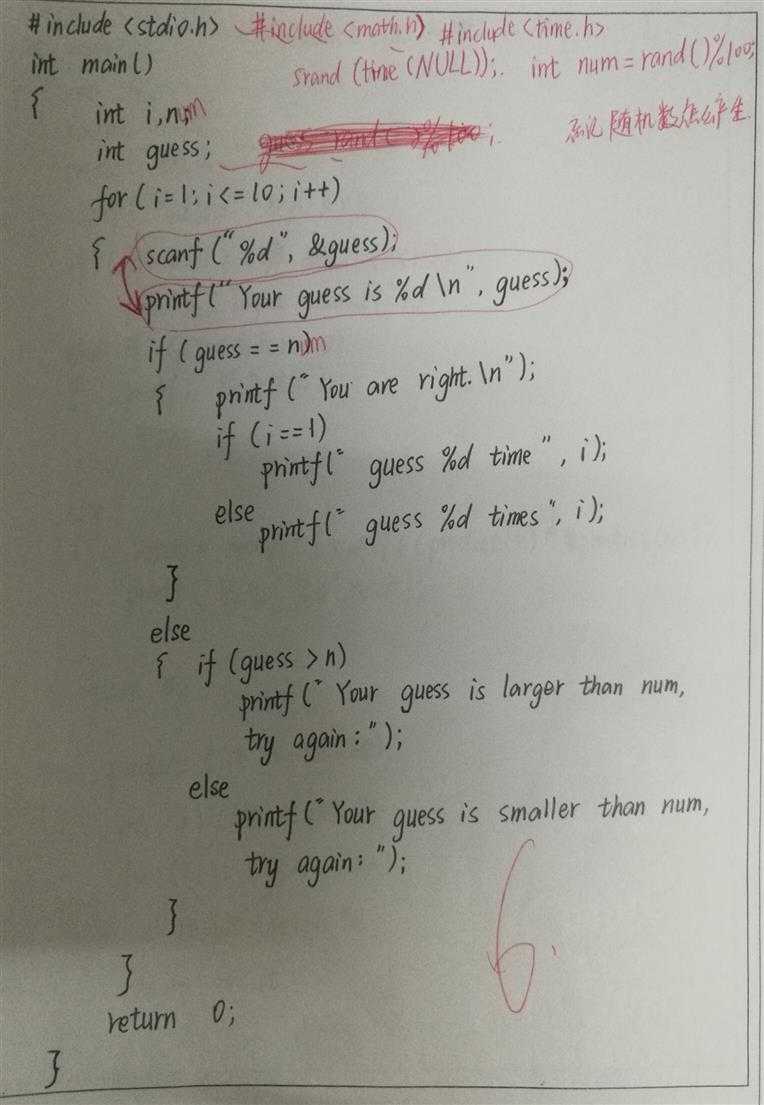 #include <stdio.h> #include <math.h) #include <time.h>
int main() srand (time (NULL)); int num = rand()%100;
{ int i,num
int guess; 随机数怎么产生.
for (i=1; i<=10; i++)
{ scanf ("%d", &guess);
printf ("Your guess is %d \n", guess);
if (guess == n)um
{ printf ("You are right. \n");
if (i==1)
printf(" guess %d time ", i);
else
printf(" guess %d times ", i);
}
else
{ if (guess >n)
printf (" Your guess is larger than num,
try again : ");
else
printf (" Your guess is smaller than num,
try again : ");
}
}
return 0;
}
6.